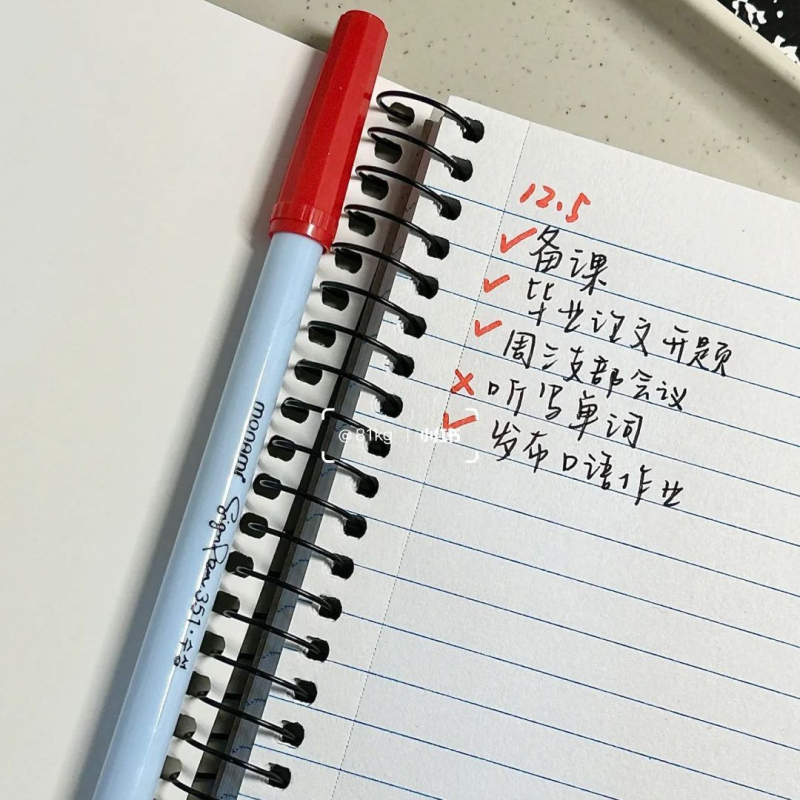 12.5
✓备课
✓毕业论文开题
✓周三支部会议
×听写单词
✓发布口语作业
monami SignPen 351·수성
@81kg